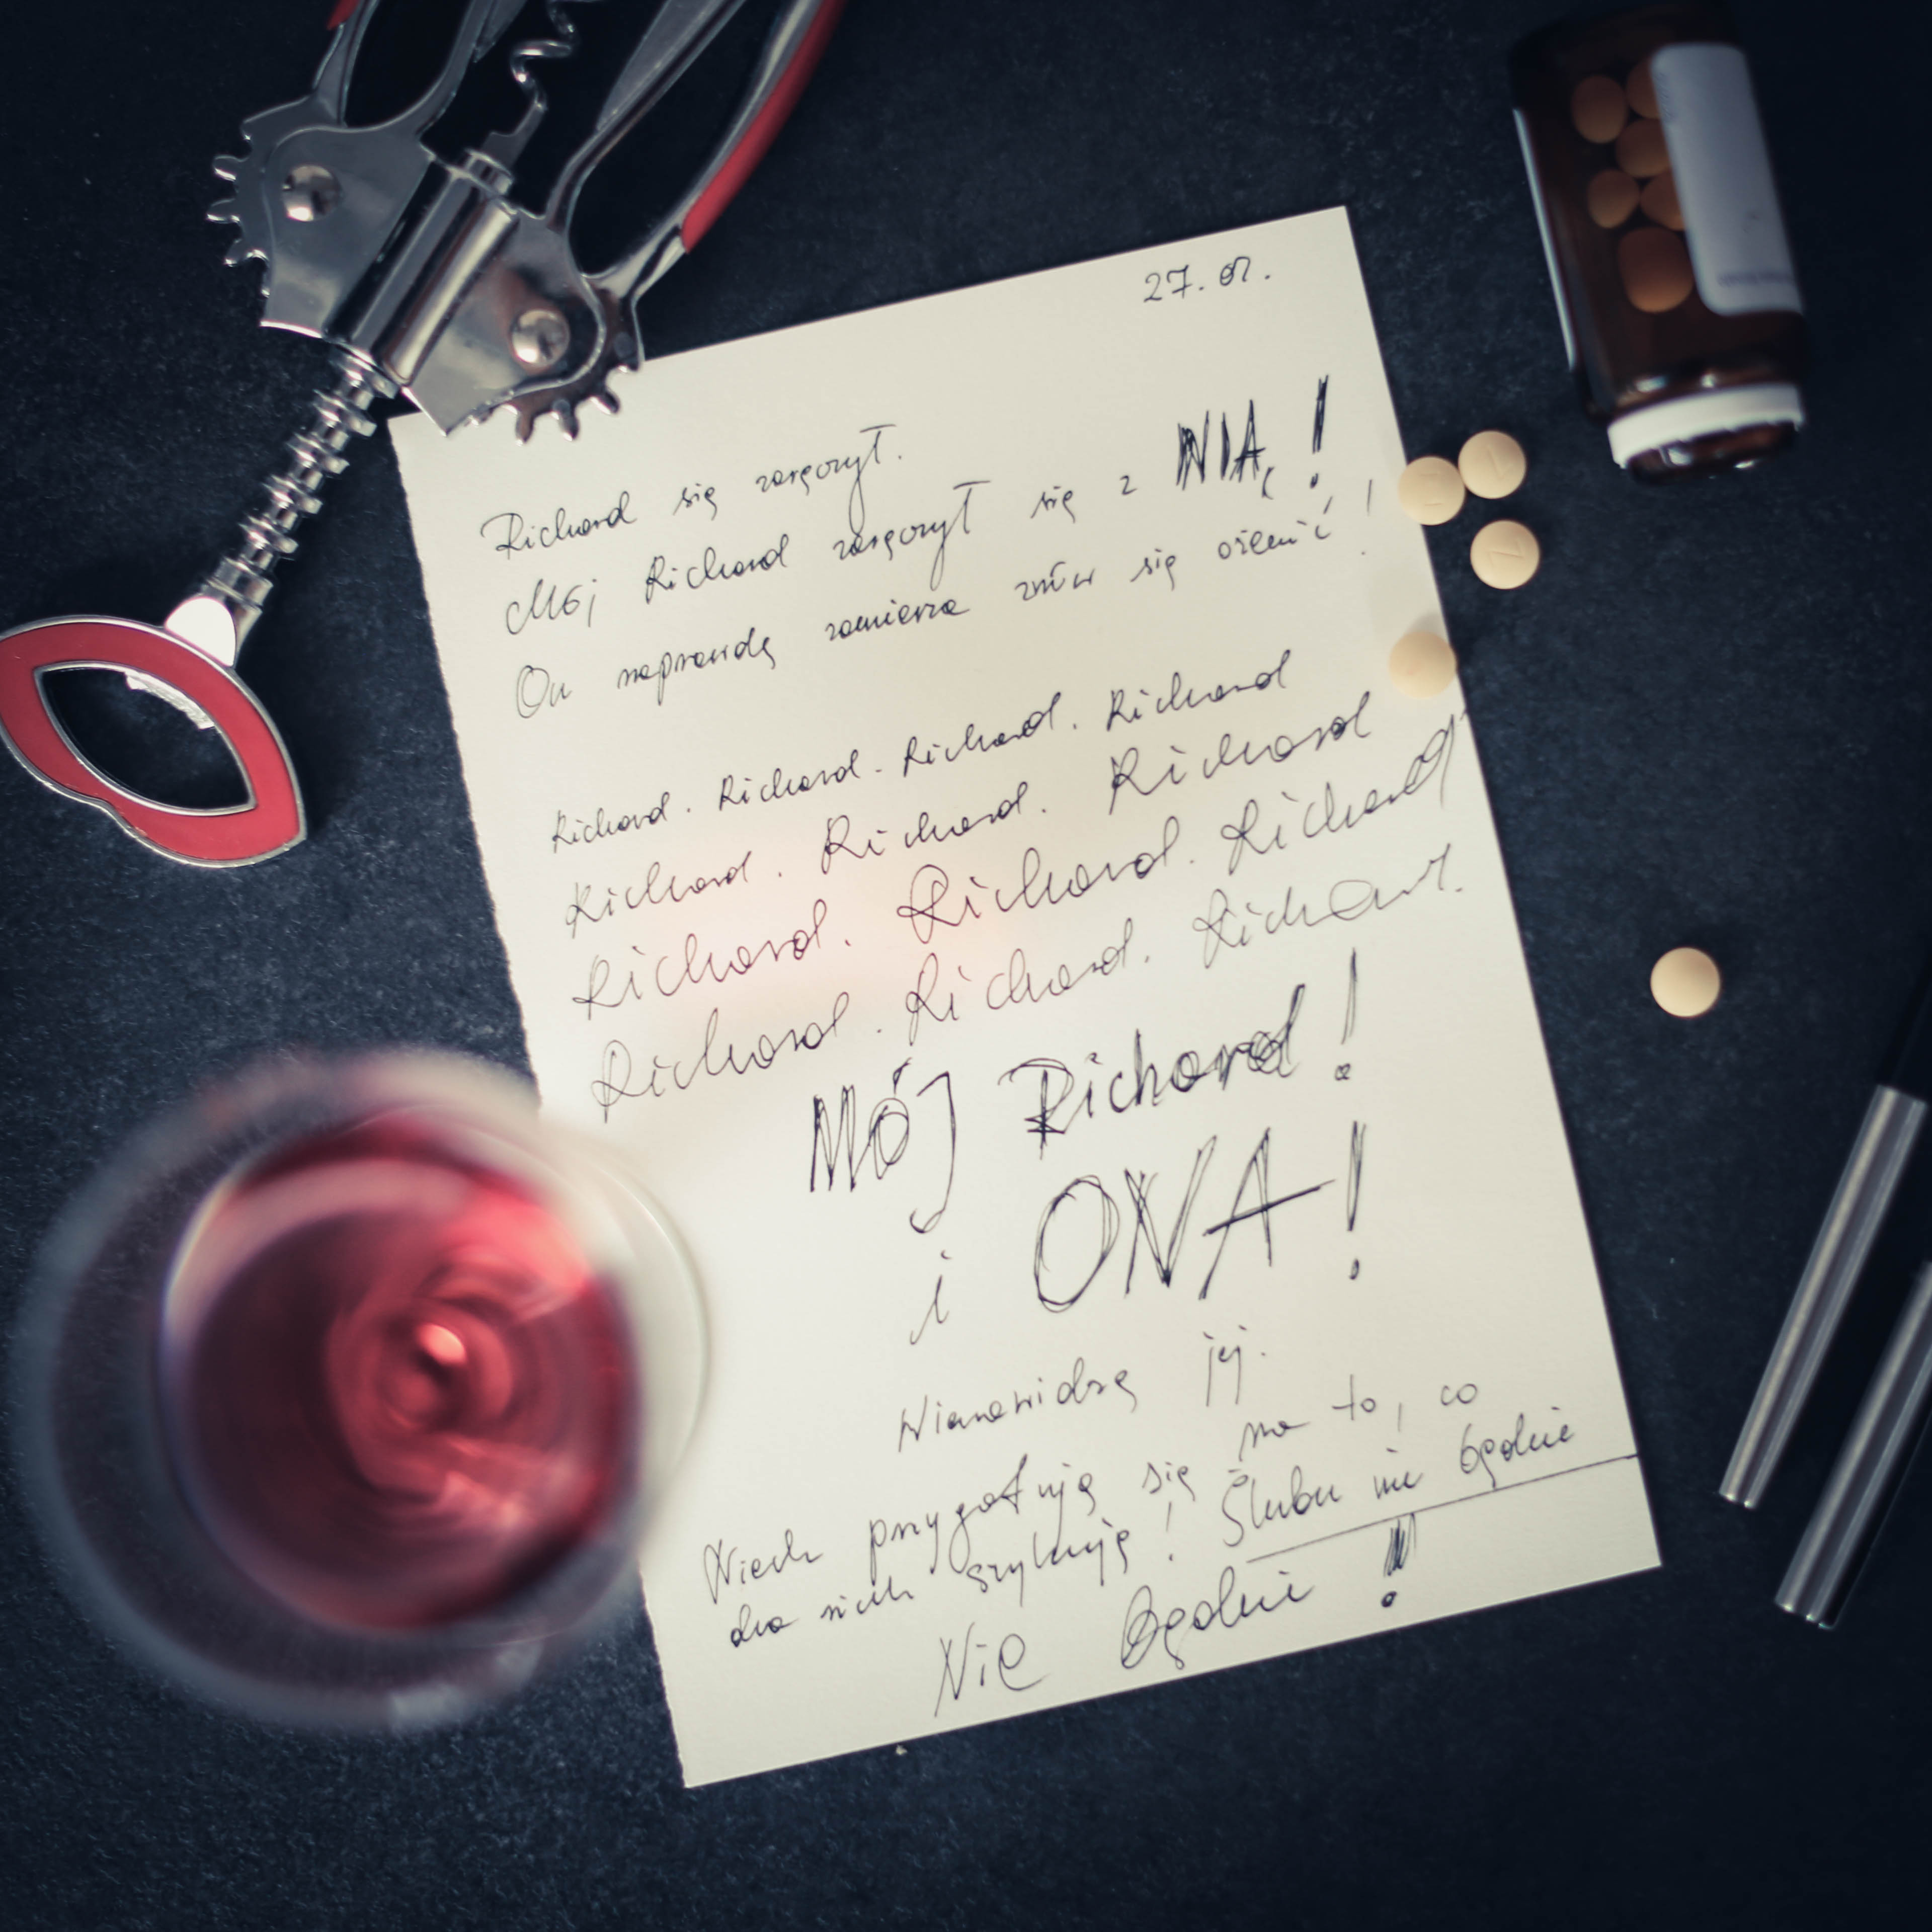 27.01.
Richard się zaręczył.
Mój Richard zaręczył się z NIĄ!
On naprawdę zamierza znów się ożenić!
Richard. Richard. Richard. Richard
Richard. Richard. Richard
Richard. Richard. Richard
Richard. Richard. Richard.
MÓJ Richard!
i ONA!
Nienawidzę jej.
Niech przygotują się na to, co
dla nich szykuję! Ślubu nie będzie
Nie będzie!